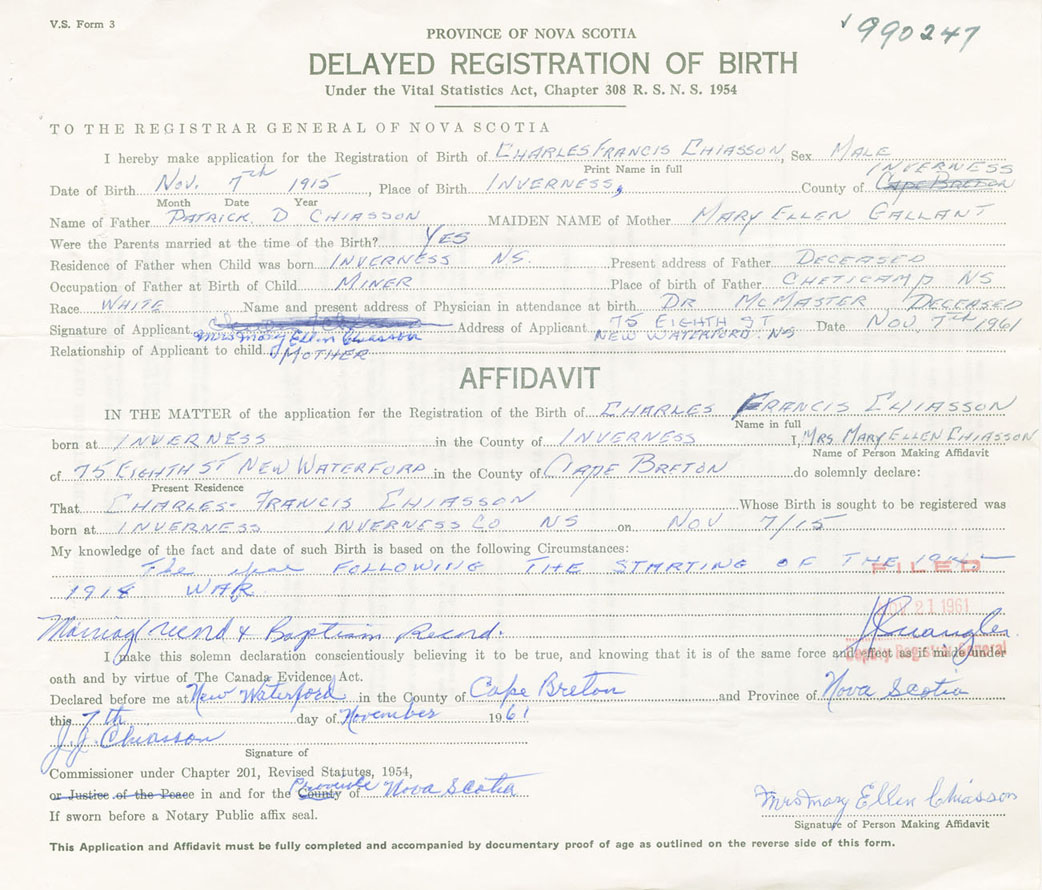 V.S. Form 3
990247
PROVINCE OF NOVA SCOTIA
DELAYED REGISTRATION OF BIRTH
Under the Vital Statistics Act, Chapter 308 R. S. N. S. 1954
TO THE REGISTRAR GENERAL OF NOVA SCOTIA
I hereby make application for the Registration of Birth of CHARLES FRANCIS CHIASSON, Sex MALE
Print Name in full
INVERNESS
Date of Birth Nov. 7th 1915, Place of Birth INVERNESS, County of Cape Breton
Month Date Year
Name of Father PATRICK. D CHIASSON MAIDEN NAME of Mother MARY ELLEN GALLANT
Were the Parents married at the time of the Birth? YES
Residence of Father when Child was born INVERNESS NS. Present address of Father DECEASED
Occupation of Father at Birth of Child MINER Place of birth of Father CHETICAMP NS
Race WHITE Name and present address of Physician in attendance at birth DR MCMASTER DECEASED
Signature of Applicant Address of Applicant 75 EIGHTH ST Date Nov. 7th 1961
Mrs Mary Ellen Chiasson NEW WATERFORD. NS
Relationship of Applicant to child MOTHER
AFFIDAVIT
IN THE MATTER of the application for the Registration of the Birth of CHARLES FRANCIS CHIASSON
Name in full
born at INVERNESS in the County of INVERNESS I, MRS. MARY ELLEN CHIASSON
Name of Person Making Affidavit
of 75 EIGHTH ST NEW WATERFORD in the County of CAPE BRETON do solemnly declare:
Present Residence
That CHARLES-FRANCIS CHIASSON Whose Birth is sought to be registered was
born at INVERNESS INVERNESS CO NS on NOV 7/15
My knowledge of the fact and date of such Birth is based on the following Circumstances:
The year FOLLOWING THE STARTING OF THE
FILED
1918 WAR
NOV 21 1961
Marriag record & Baptism Record.
Deputy Registrar General
I make this solemn declaration conscientiously believing it to be true, and knowing that it is of the same force and effect as if made under
oath and by virtue of The Canada Evidence Act.
Declared before me at New Waterford in the County of Cape Breton and Province of Nova Scotia
this 7th day of November 1961
J. J. Chiasson
Signature of
Commissioner under Chapter 201, Revised Statutes, 1954,
Province
or Justice of the Peace in and for the County of Nova Scotia
If sworn before a Notary Public affix seal.
Mrs Mary Ellen Chiasson
Signature of Person Making Affidavit
This Application and Affidavit must be fully completed and accompanied by documentary proof of age as outlined on the reverse side of this form.